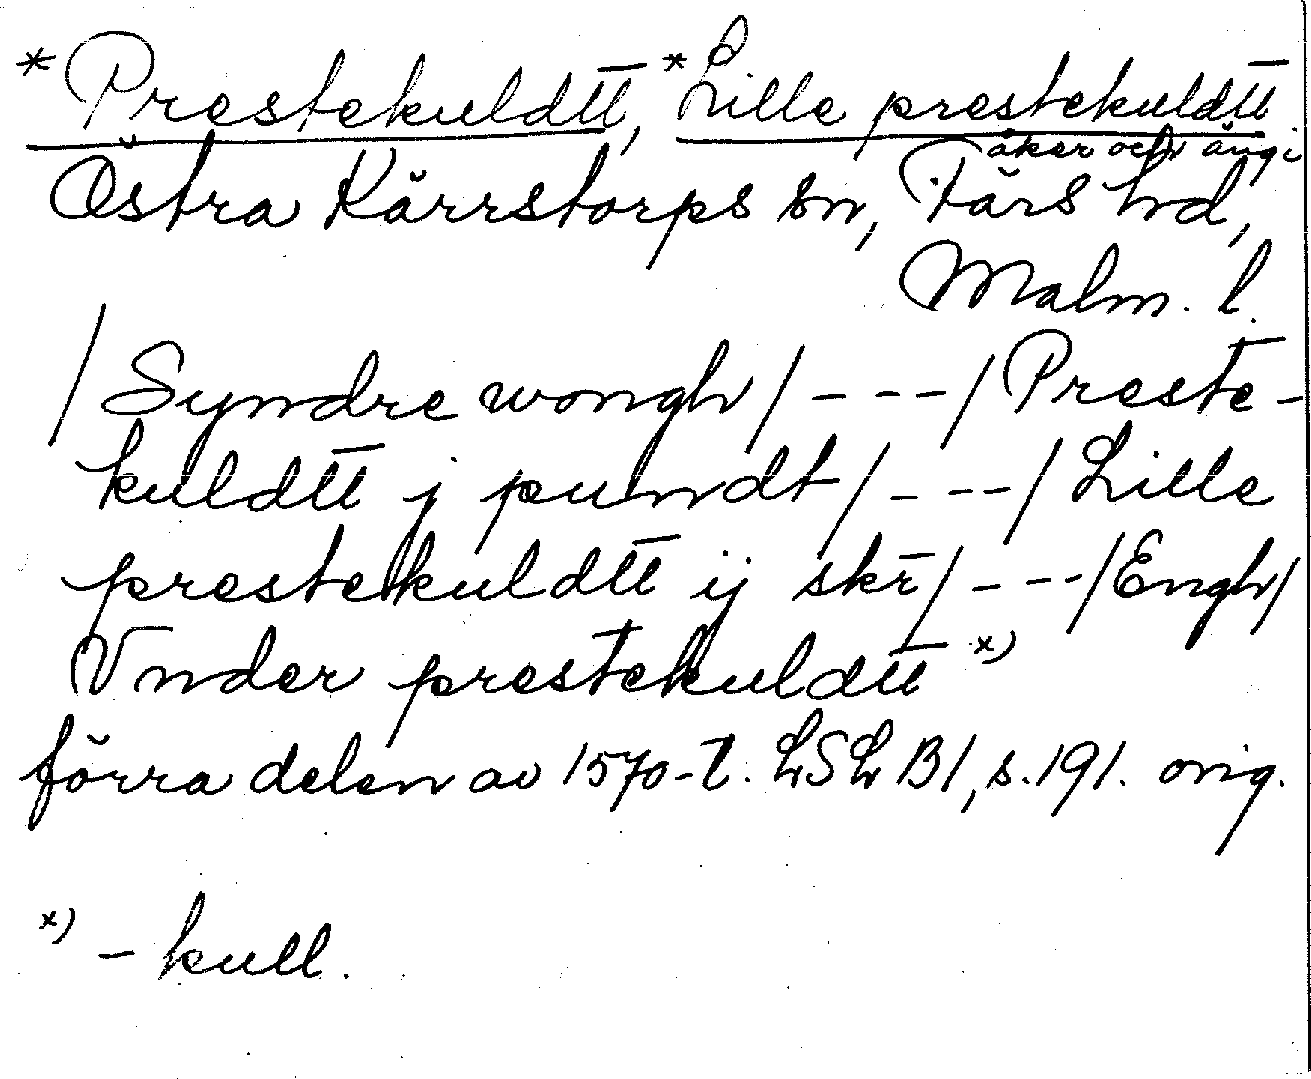 *Prestekuldtt̄, *Lille prestekuldtt̄
åker och äng i
Östra Kärrstorps sn, Färs hd,
Malm. l.
/Syndre wongh/ - - - /Preste-
kuldtt̄ j pundt/ - - - /Lille
prestekuldtt̄ ij skr̄/ - - - /Engh/
Vnder prestekuldtt̄ x)
förra delen av 1570-t. LSLB1, s. 191. orig.
x) - kull.